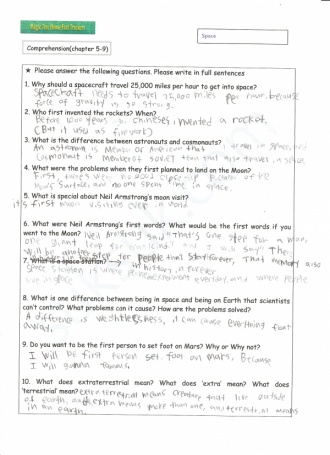 Magic Tree House Fact Trackers
Space
Comprehension(chapter 5-9)
★ Please answer the following questions. Please write in full sentences
1. Why should a spacecraft travel 25,000 miles per hour to get into space?
Spacecraft needs to travel 25,000 miles per hour, because
force of gravity is so strong.
2. Who first invented the rockets? When?
Before 1000 years ago chineses invented a rocket,
(But it used as firework)
3. What is the difference between astronauts and cosmonauts?
An astronaut is member of American that travel in space, and
Cosmonaut is member of soviet that also travel in space.
4. What were the problems when they first planned to land on the Moon?
First, there were no good of the
surface, and no one spent time in space.
5. What is special about Neil Armstrong's moon visit?
it's first moon visiting ever in world
6. What were Neil Armstrong's first words? What would be the first words if you
went to the Moon? Neil Armstrong said "That's one step for a man,
one giant leap for mankind. and I will say "The
step for people that stay forever, That memory also
7. What is a space station? in history, in forever
Space station is where people experiment everyday and where people
live in space
8. What is one difference between being in space and being on Earth that scientists
can't control? What problems can it cause? How are the problems solved?
A difference is weightlessness, it can cause everything float
away.
9. Do you want to be the first person to set foot on Mars? Why or Why not?
I will be first person set foot on mars, Because
I will gonna famous.
10. What does extraterrestrial mean? What does 'extra' mean? What does
'terrestrial' mean? extraterrestrial means creature that live outside
of earth, extra means more than one, and terrestrial means
in an earth.